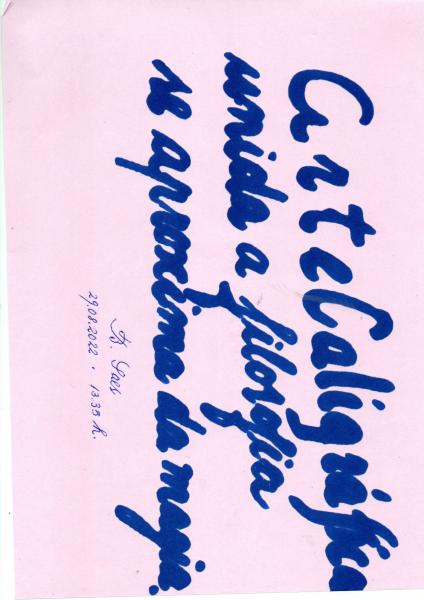 Arte Caligráfica
unida a filosofia
se aproxima da magia.
Paes
29.08.2022 · 13.35 h.